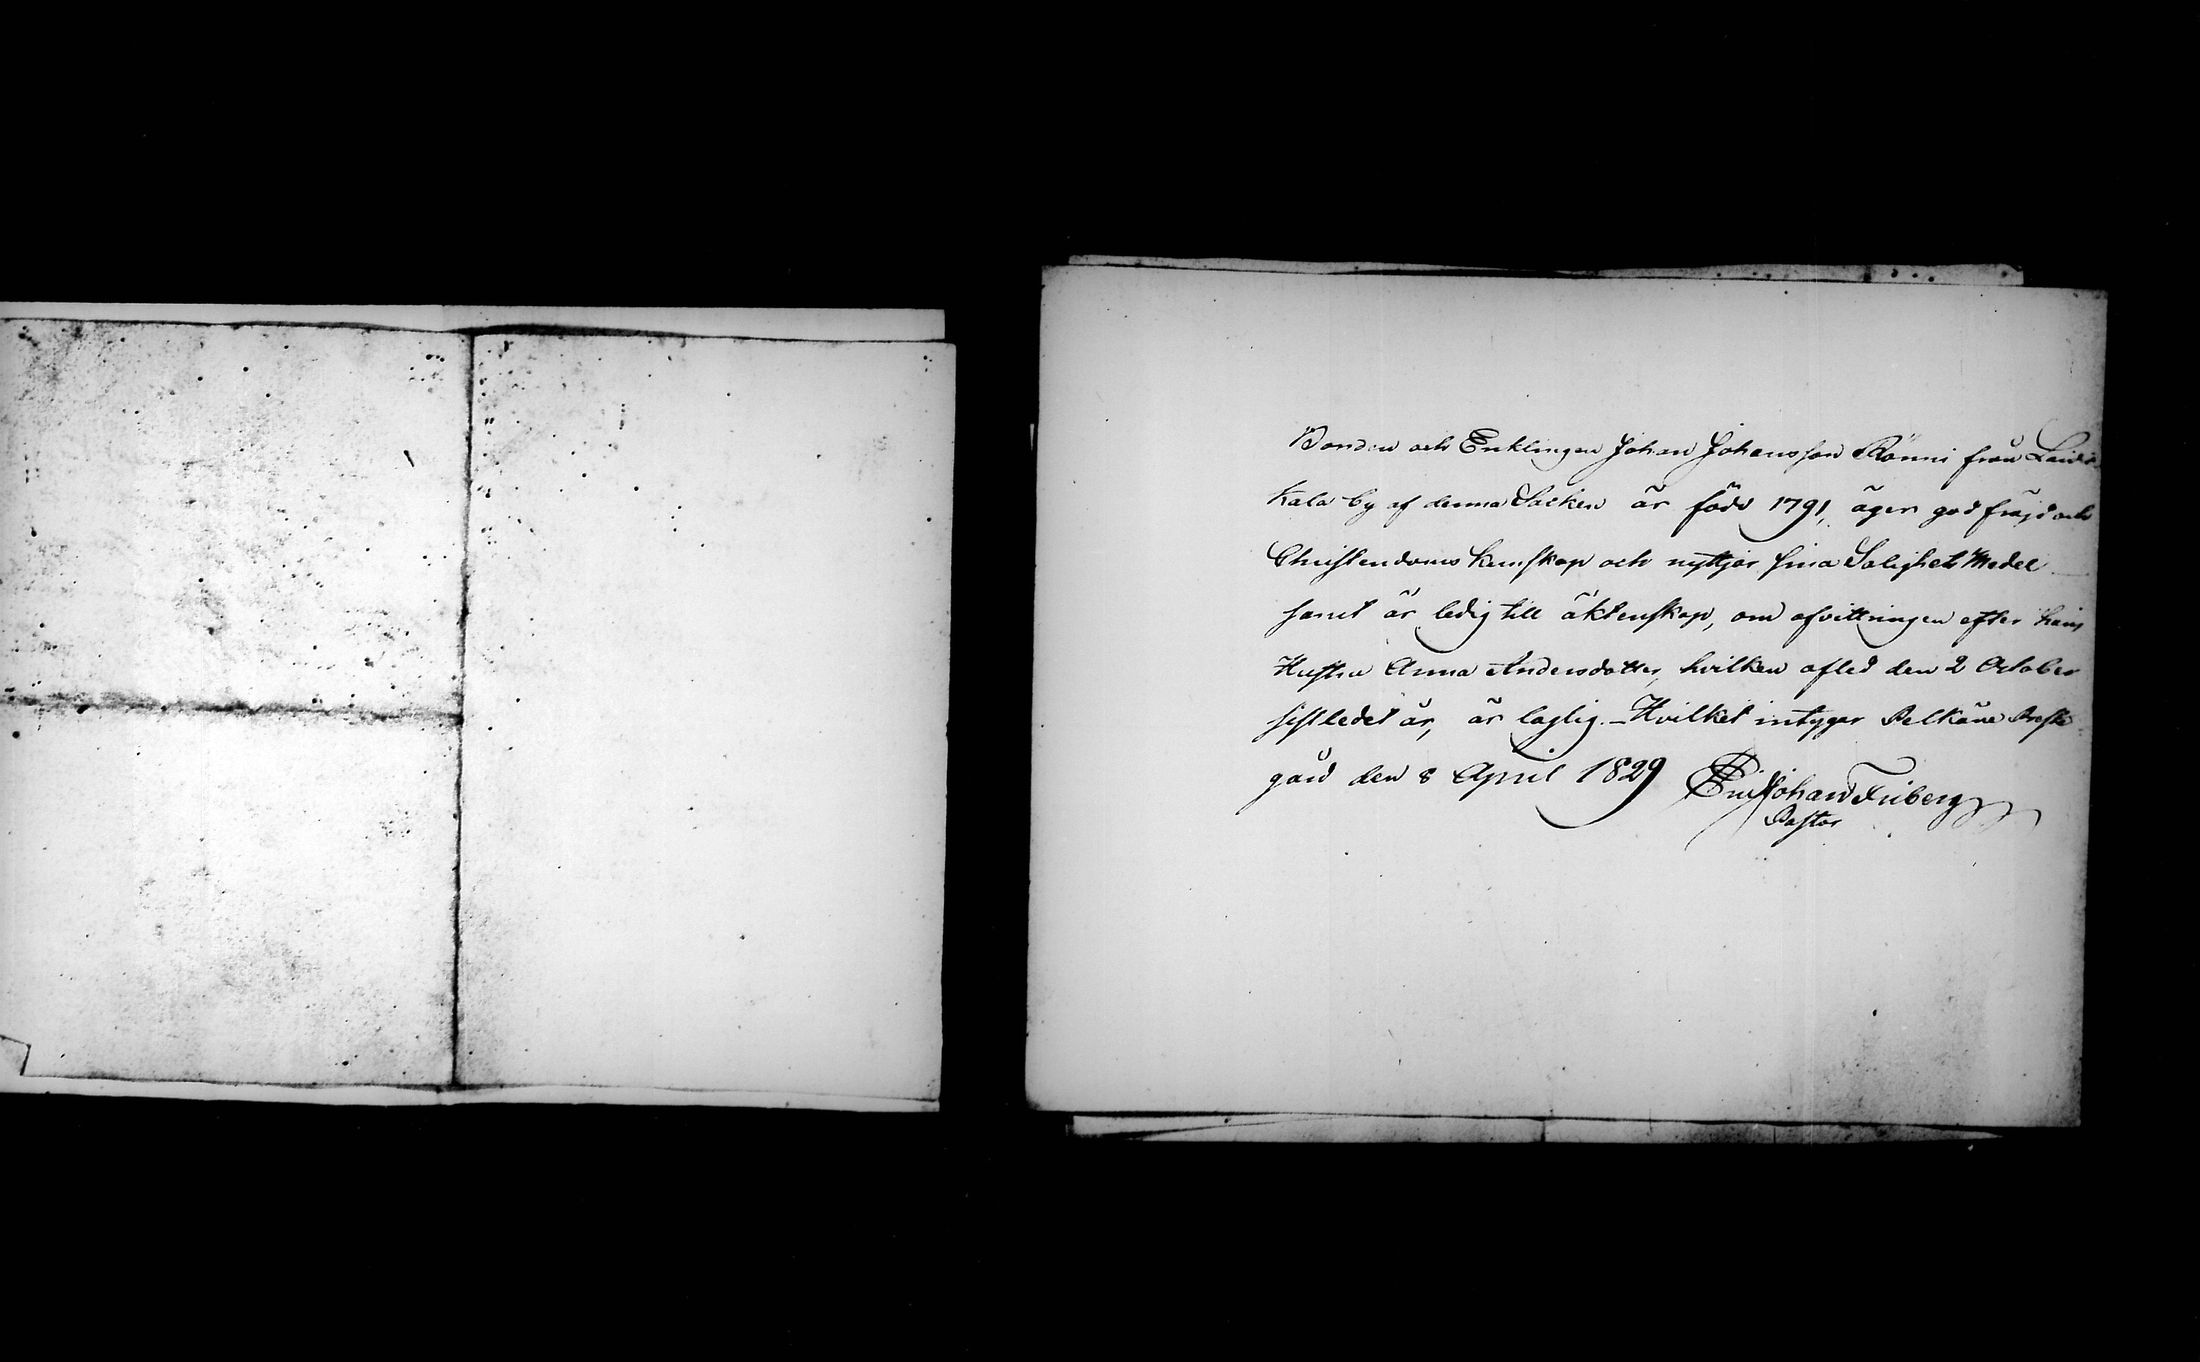 Bonden och Enklingen Johan Johansson Rönni från Laiti
kala by af denna Socken är född 1791, äger god fräjd och
Christendoms kunskap och nyttjar sina Salighets Medel
samt är ledig till äktenskap, om afvittringen efter hans
Hustru Anna Andersdotter, hvilken afled den 2 October
sistledet år, är laglig. – Hvilket intygar Pelkäne Preste
gård den 8 April 1829 Eric Johan Friberg
Pastor